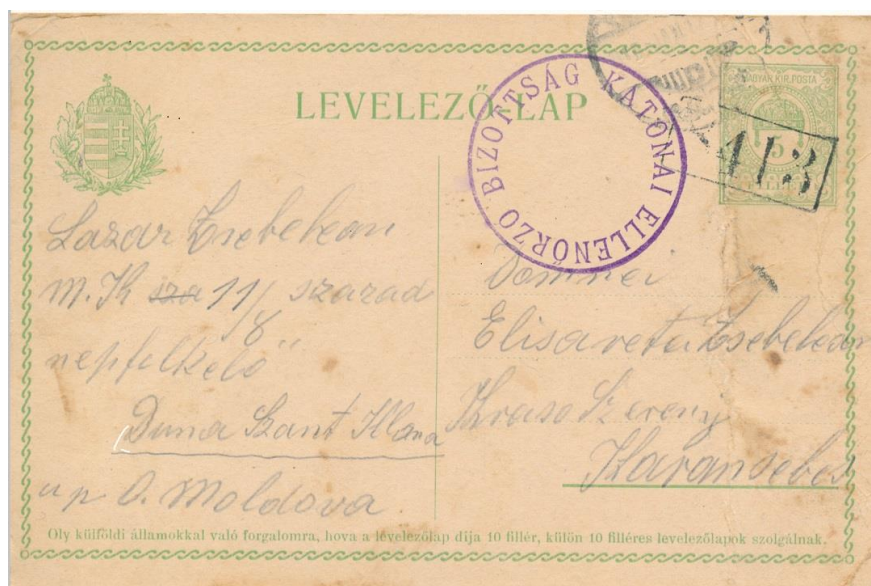 LEVELEZŐ-LAP
MAGYAR KIR. POSTA
5
KATONAI ELLENŐRZŐ BIZOTTSÁG
413
Lazar Zsebelean
M. K 11/8 szazad
nepfelkelö"
Duna Szant Klara
up O. Moldova
Domnei
Elisaveta Zsebelean
Kraso Szereny
Karansebes
Oly külföldi államokkal való forgalomra, hova a levelezőlap díja 10 fillér, külön 10 filléres levelezőlapok szolgálnak.